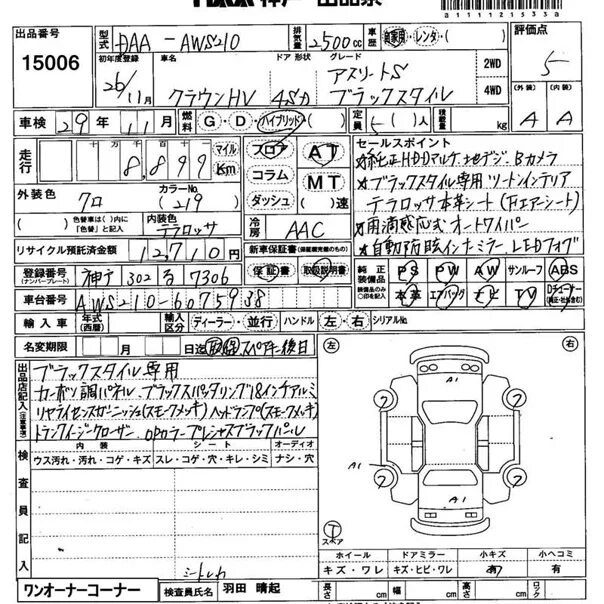 出品番号 15006
型式 DAA - AWS210
排気量 2500cc
車歴 自家用・レンタ・( )
評価点 5
初年度登録 26/11月
車名 クラウンHV
ドア 形状 4SD
グレード アスリートS ブラックスタイル
2WD
4WD
(外装) A (内装) A
車検 29年 11月
燃料 G・D・ハイブリッド・( )
定員 5( )人
積載量 kg
走行 8,899 マイル Km
フロア AT
コラム MT
ダッシュ ( )速
外装色 クロ
カラーNo. (219)
( ) 色替車は( )内に"色替"と記入
内装色 テラロッサ
冷房 AAC
セールスポイント
★純正HDDマルチ地デジBカメラ
★ブラックスタイル専用ツートンインテリア
テラロッサ本革シート(Fエアーシート)
★雨滴感応式オートワイパー
★自動防眩インナーミラーLEDフォグ
リサイクル預託済金額 12,710円
新車保証書(保証継続可能のもの)
保証書 取扱説明書
登録番号(ナンバープレート) 神戸 302 る 7306
車台番号 AWS210-6075938
純正装備品
装備品のみ○印を記入
PS PW AW サンルーフ ABS
本革 エアバッグ ナビ TV
輸入車 年式(西暦)
輸入区分 ディーラー・並行
ハンドル 左・右
シリアルNo.
名変期限 月 日迄
出品店記入(注意事項)
ブラックスタイル専用
カーボン調パネル、ブラックスパッタリング18インチアルミ
リヤライセンスガーニッシュ(スモークメッキ)ヘッドランプ(スモークメッキ)
トランクイージークローザー、OPカラープレシャスブラックパール
検査員記入
内装 シート オーディオ
ウス汚れ・汚れ・コゲ・キズ スレ・コゲ・穴・キレ・シミ ナシ・穴
シートしわ
左 右
A1
A1
A1
スペア
ホイール ドアミラー 小キズ 小ヘコミ
キズ・ワレ キズ・ヒビ・ワレ 有 有
ワンオーナーコーナー
検査員氏名 羽田 晴起
長さ cm 幅 cm 高さ cm ロック